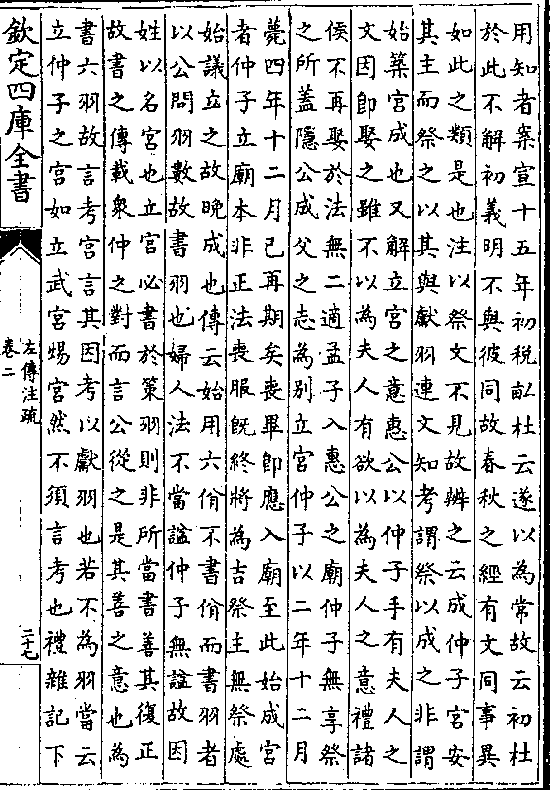 用知者案宣十五年初税畝杜云遂以為常故云初杜
於此不解初義明不與彼同故春秋之經有文同事異
如此之類是也注以祭文不見故辨之云成仲子宫安
其主而祭之以其與獻羽連文知考謂祭以成之非謂
始築宫成也又解立宫之意惠公以仲子手有夫人之
文因即娶之雖不以為夫人有欲以為夫人之意禮諸
侯不再娶於法無二適孟子入惠公之廟仲子無享祭
之所蓋隱公成父之志為别立宫仲子以二年十二月
薨四年十二月已再期矣喪畢即應入廟至此始成宫
者仲子立廟本非正法喪服既終將為吉祭主無祭處
始議立之故晚成也傳云始用六佾不書佾而書羽者
以公問羽數故書羽也婦人法不當諡仲子無諡故因
姓以名宫也立宫必書於策羽則非所當書善其復正
故書之傳載衆仲之對而言公從之是其善之意也為
書六羽故言考宫言其因考以獻羽也若不為羽當云
立仲子之宫如立武宫煬宫然不須言考也禮雜記下
欽定四庫全書
左傳注疏
卷二
二十七